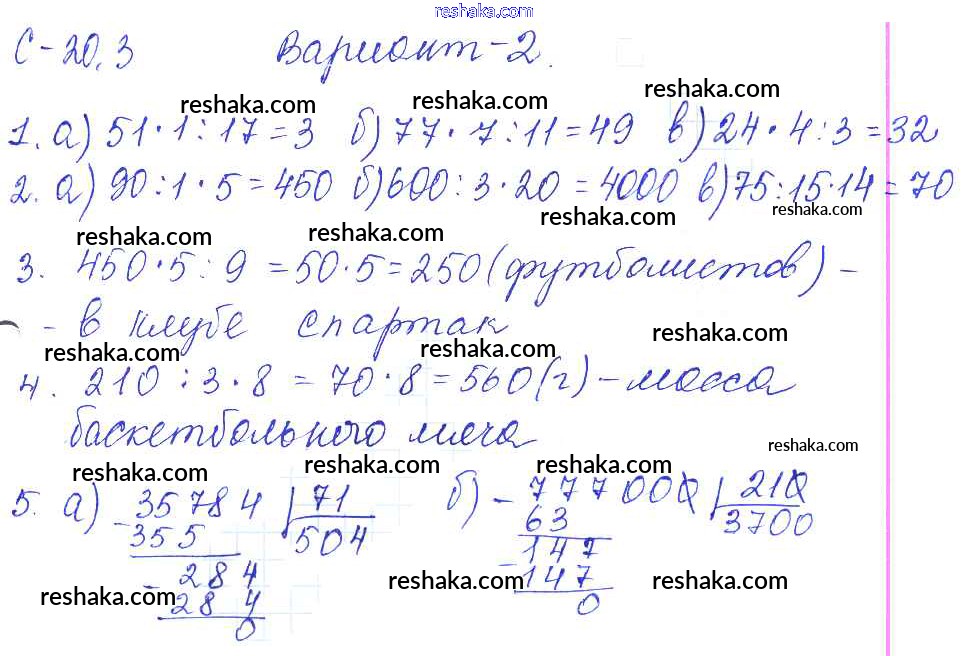 reshaka.com
С-20.3 Вариант-2.
reshaka.com reshaka.com reshaka.com
1. а) 51·1:17=3 б) 77·7:11=49 в) 24·4:3=32
2. а) 90:1·5=450 б) 600:3·20=4000 в) 75:15·14=70
reshaka.com reshaka.com reshaka.com reshaka.com
3. 450·5:9=50·5=250 (футболистов) -
- в клубе спартак
reshaka.com reshaka.com reshaka.com
4. 210:3·8=70·8=560(г) - масса
баскетбольного мяча
reshaka.com reshaka.com reshaka.com
5. а) 35784 71 б) - 777000 210
- 355 504 63 3700
- 284 147
284 - 147
0 0
reshaka.com reshaka.com reshaka.com